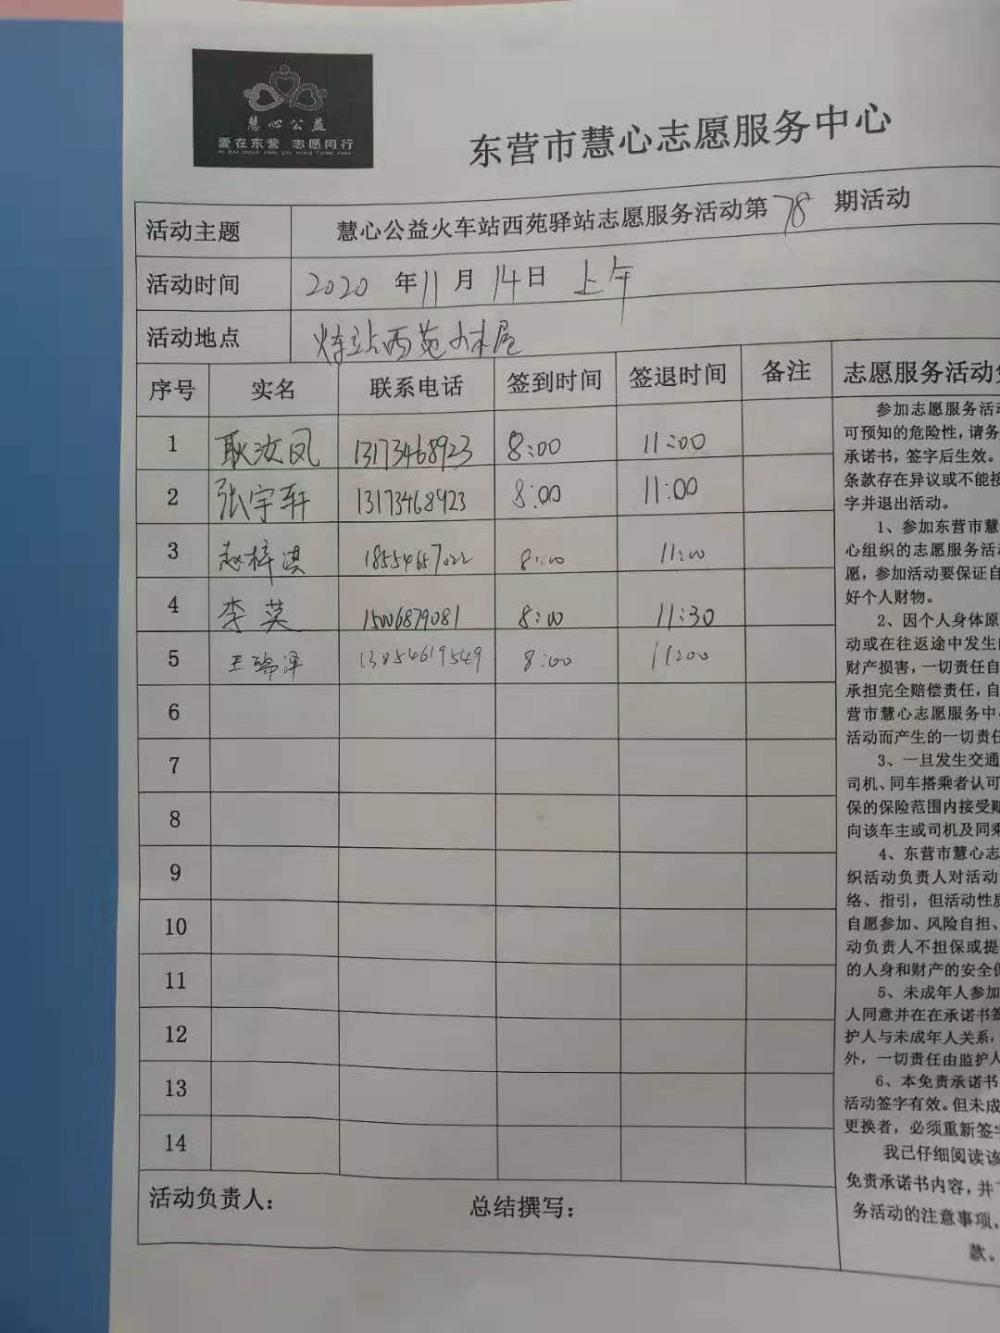 慧心公益
爱在东营 志愿同行
东营市慧心志愿服务中心
活动主题 慧心公益火车站西苑驿站志愿服务活动第78期活动
活动时间 2020年11月14日 上午
活动地点 火车站西苑小木屋
序号 实名 联系电话 签到时间 签退时间 备注
1 耿汝凤 13173468923 8:00 11:00
2 张宇轩 13173468923 8:00 11:00
3 赵梓淇 18554657022 8:00 11:00
4 李英 15006879081 8:00 11:30
5 王瑞泽 13854619549 8:00 11:00
6
7
8
9
10
11
12
13
14
活动负责人： 总结撰写：
志愿服务活动免
参加志愿服务活动
可预知的危险性，请务
承诺书，签字后生效。
条款存在异议或不能接
字并退出活动。
1、参加东营市慧
心组织的志愿服务活动
愿，参加活动要保证自
好个人财物。
2、因个人身体原
动或在往返途中发生的
财产损害，一切责任自
承担完全赔偿责任，自
营市慧心志愿服务中心
活动而产生的一切责任
3、一旦发生交通
司机、同车搭乘者认可
保的保险范围内接受赔
向该车主或司机及同乘
4、东营市慧心志
织活动负责人对活动
络、指引，但活动性质
自愿参加、风险自担、
动负责人不担保或提
的人身和财产的安全保
5、未成年人参加
人同意并在在承诺书签
护人与未成年人关系，
外，一切责任由监护人
6、本免责承诺书
活动签字有效。但未成
更换者，必须重新签字
我已仔细阅读该
免责承诺书内容，并
务活动的注意事项，
款。